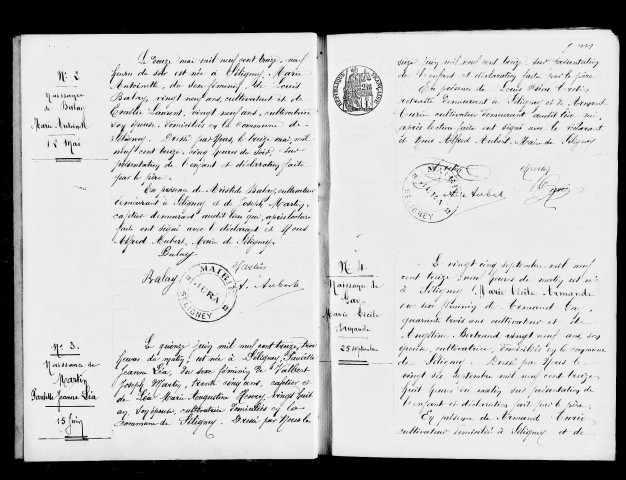 N° 2
Naissance
de Balay
Marie Antoinette
12 Mai
Le douze mai mil neuf cent treize, neuf
heures du soir est née à Séligney, Marie
Antoinette, du sexe féminin, de Louis
Balay, vingt neuf ans, cultivateur et de
Emélie Laurent, vingt neuf ans, cultivatrice
son épouse, domiciliés en la commune de
Séligney. Dressé par Nous, le treize mai, mil
neuf cent treize, cinq heures du soir, sur
présentation de l'enfant et déclaration faite
par le père.
En présence de Aristide Balay, cultivateur
demeurant à Séligney et de Joseph Martin,
cafetier demeurant audit lieu qui, après lecture
faite ont signé avec le déclarant et Nous
Alfred Aubert, Maire de Séligney.
Balay
Martin
Balay
A. Aubert
MAIRIE
JURA
SELIGNEY
N° 3.
Naissance de
Martin
Paulette Jeanne Léa
15 Juin
Le quinze juin mil neuf cent treize, trois
heures du matin, est née à Séligney, Paulette
Jeanne Léa, du sexe féminin, de
Joseph Martin, trente cinq ans, cafetier et
de Léa Marie Augustine Henry, vingt huit
ans, son épouse, cultivatrice domiciliés en la
commune de Séligney. Dressé par Nous le
seize juin mil neuf cent treize, sur présentation
de l'enfant et déclaration faite par le père.
En présence de Louis
retraité demeurant à Séligney et de
cultivateur demeurant audit lieu qui,
après lecture faite ont signé avec le déclarant
et Nous Alfred Aubert, Maire de Séligney
REPUBLIQUE FRANÇAISE
Martin
A. Aubert
MAIRIE
JURA
SELIGNEY
N° 4.
Naissance de
Gay
Marie Cécile
Armande
25 septembre
Le vingt cinq septembre mil neuf
cent treize neuf heures du matin est née
à Séligney Marie Cécile Armande
du sexe féminin de Armand Gay,
quarante trois ans cultivateur et de
Angéline Bertrand vingt neuf ans, son
épouse, cultivatrice, domiciliés en la commune
de Séligney. Dressé par Nous le
vingt six septembre mil neuf cent treize,
huit heures du matin sur présentation de
l'enfant et déclaration faite par le père.
En présence de Armand
cultivateur domicilié à Séligney et de